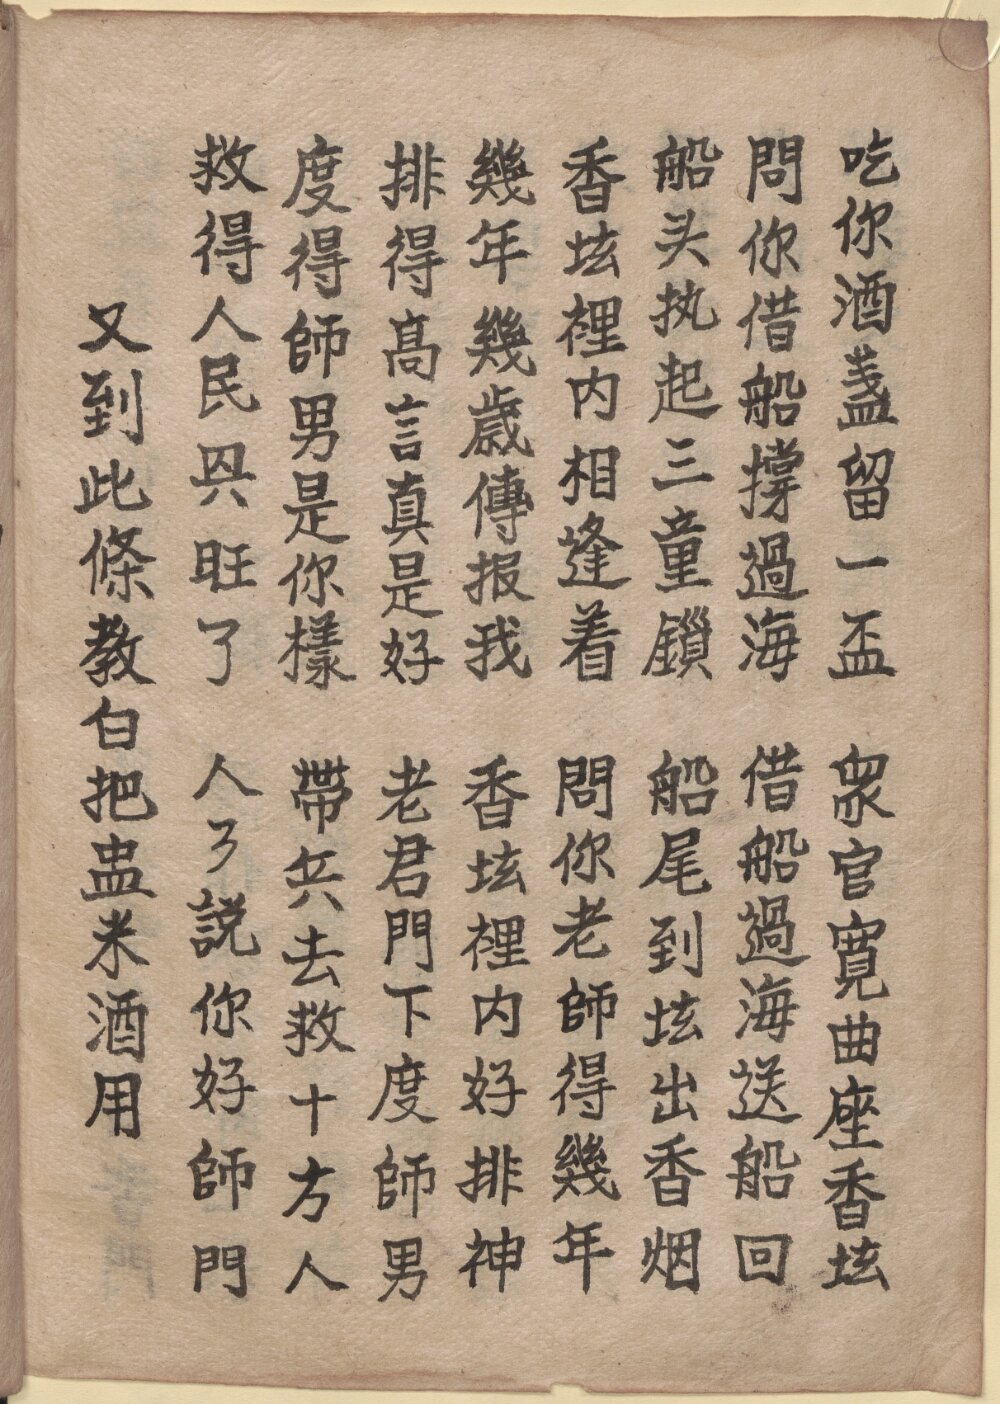 吃你酒盞留一盃　衆官寬曲座香坛
問你借船撐過海　借船過海送船回
船头执起三童鎖　船尾到坛出香烟
香坛裡内相逢着　問你老師得幾年
幾年幾歲傳报我　香坛裡内好排神
排得高言真是好　老君門下度師男
度得師男是你樣　帶兵去救十方人
救得人民興旺了　人了說你好師門
又到此條教白把盅米酒用